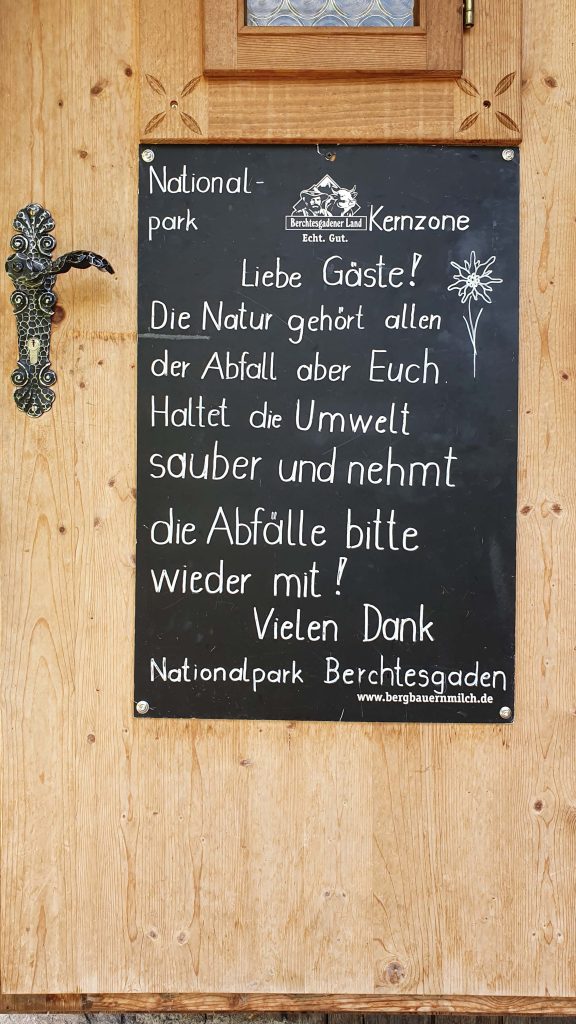 National-
park
Berchtesgadener Land
Kernzone
Echt. Gut.
Liebe Gäste!
Die Natur gehört allen
der Abfall aber Euch.
Haltet die Umwelt
sauber und nehmt
die Abfälle bitte
wieder mit!
Vielen Dank
Nationalpark Berchtesgaden
www.bergbauernmilch.de